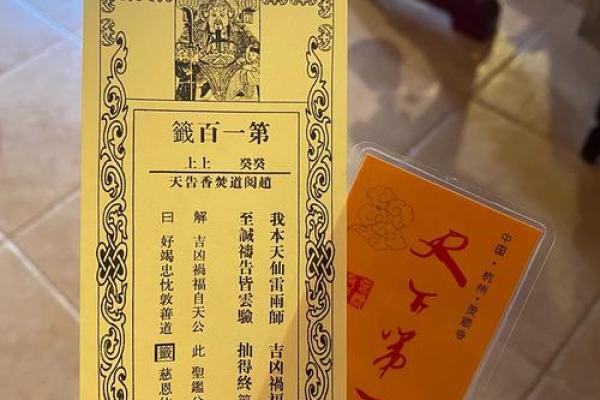 第一百籤
癸癸 上上
趙閱道焚香告天
我本天仙雷雨師 吉凶禍福
至誠禱告皆雲驗 抽得終
解 吉凶禍福自天公 此 聖鑑
曰 好竭忠忱敦善道 籤 慈恩
中国·杭州·灵顺寺
天下第